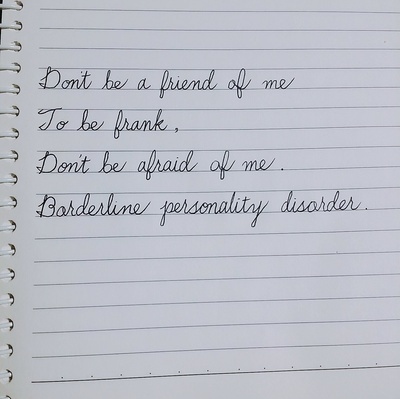 Don't be a friend of me
To be frank,
Don't be afraid of me.
Borderline personality disorder.